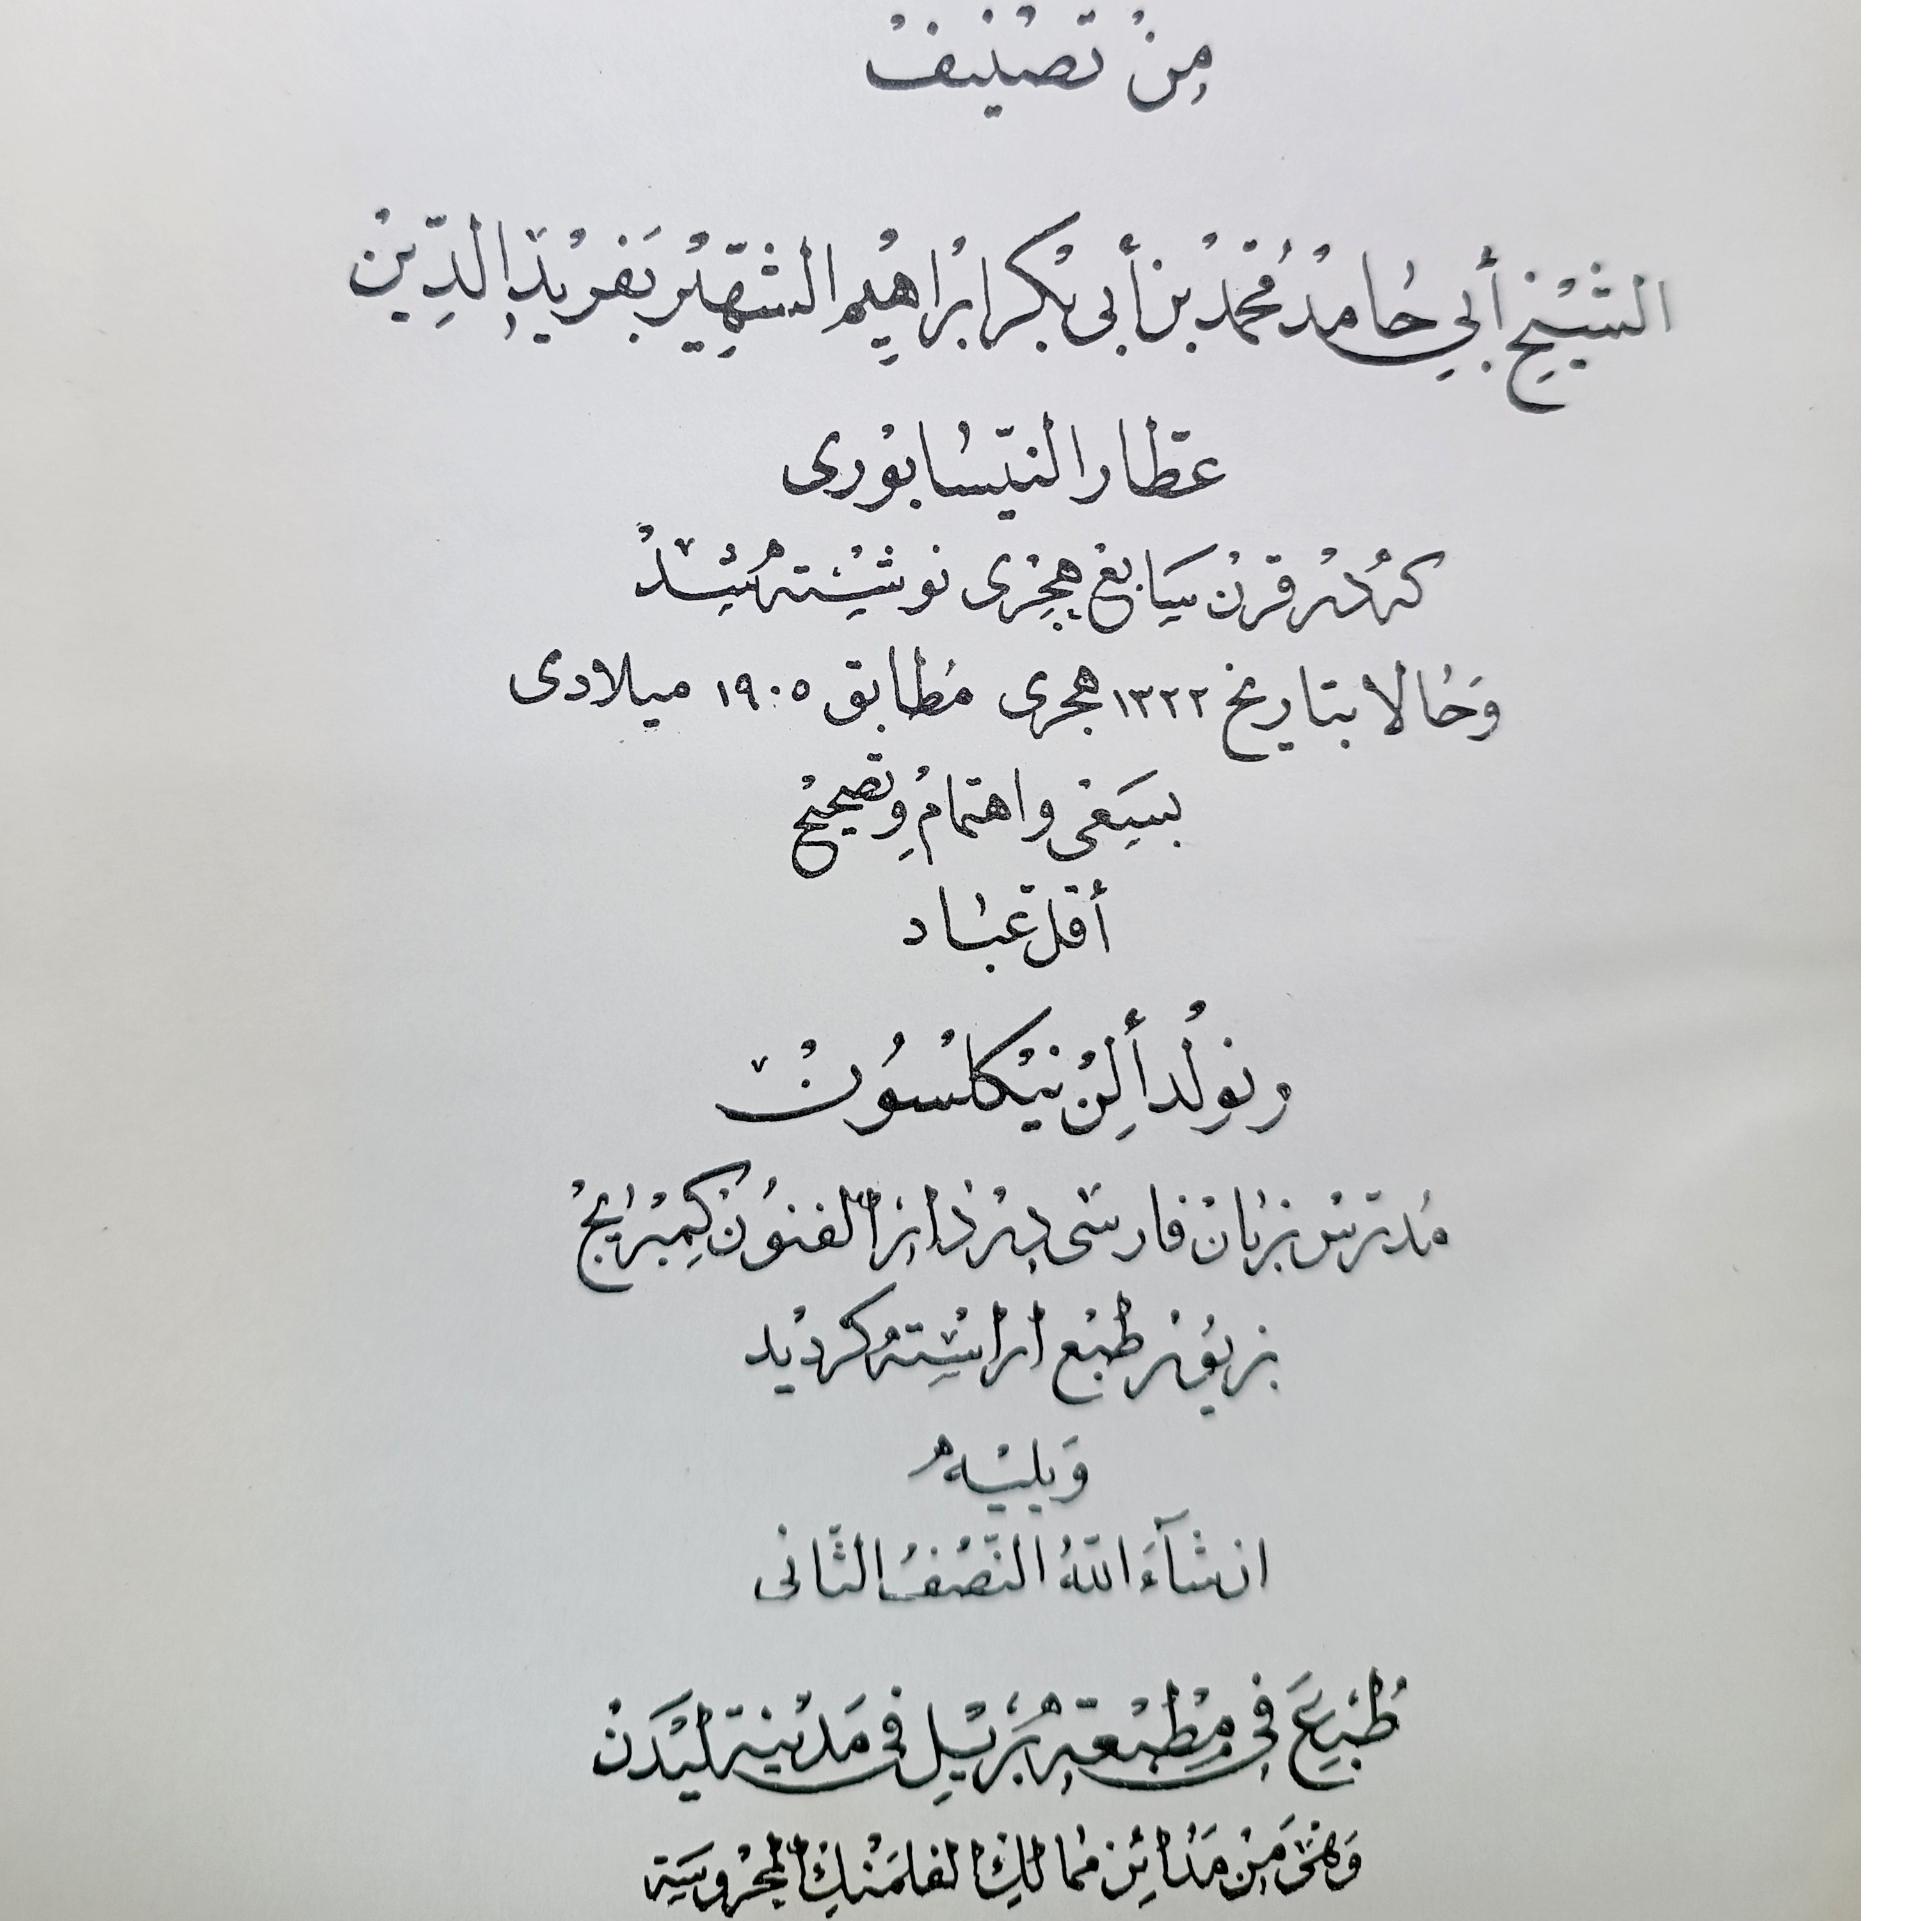 مِنْ تَصْنِیفْ
الشَّیْخِ أَبِي حَامِدْ مُحَمَّدْ بْنْ أَبِی بَکْر ابْرَاهِیْم الشَّهِیْر بَفَرِیْدِ الدِّیْنْ
عطّار النیّسابوری
که در قرن سابع هجری نوشته شد
وحالا بتاریخ ۱۳۲۲ هجری مطابق ۱۹۰۵ میلادی
بسعی واهتمام وتصحیح
أقل عباد
رنولد ألن نیکلسون
مدرس زبان فارسی در دار الفنون کمبریج
بزیور طبع اراسته کردید
ویلیه
انشآء الله النصف الثانی
طُبِعَ فِی مِطْبَعَه بریل فِی مَدِیْنَة لَیْدَنْ
وَهِیَ مِنْ مَدَائِن مَمَالِكِ الفلمَنْكِ المَحْرُوسَة